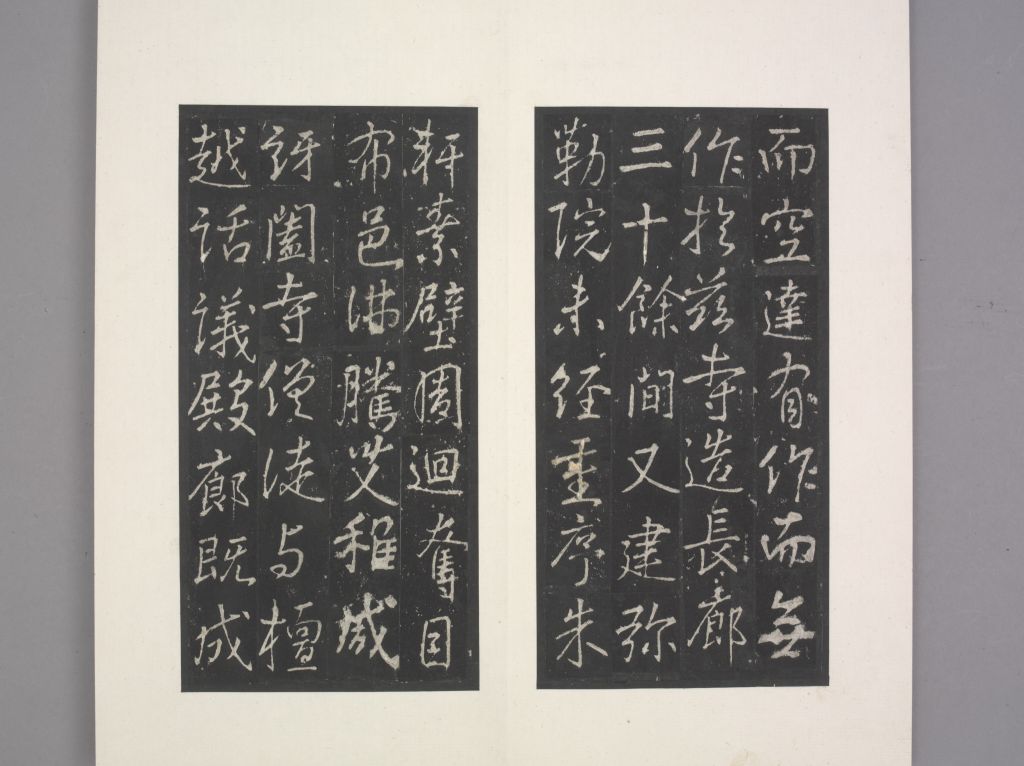 而空達有作而無
作於茲寺造長廊
三十餘間又建弥
勒院末經重序朱
軒素壁周迴奪目
布邑沸騰艾稚咸
訝闔寺僧徒与檀
越話議殿廊既成